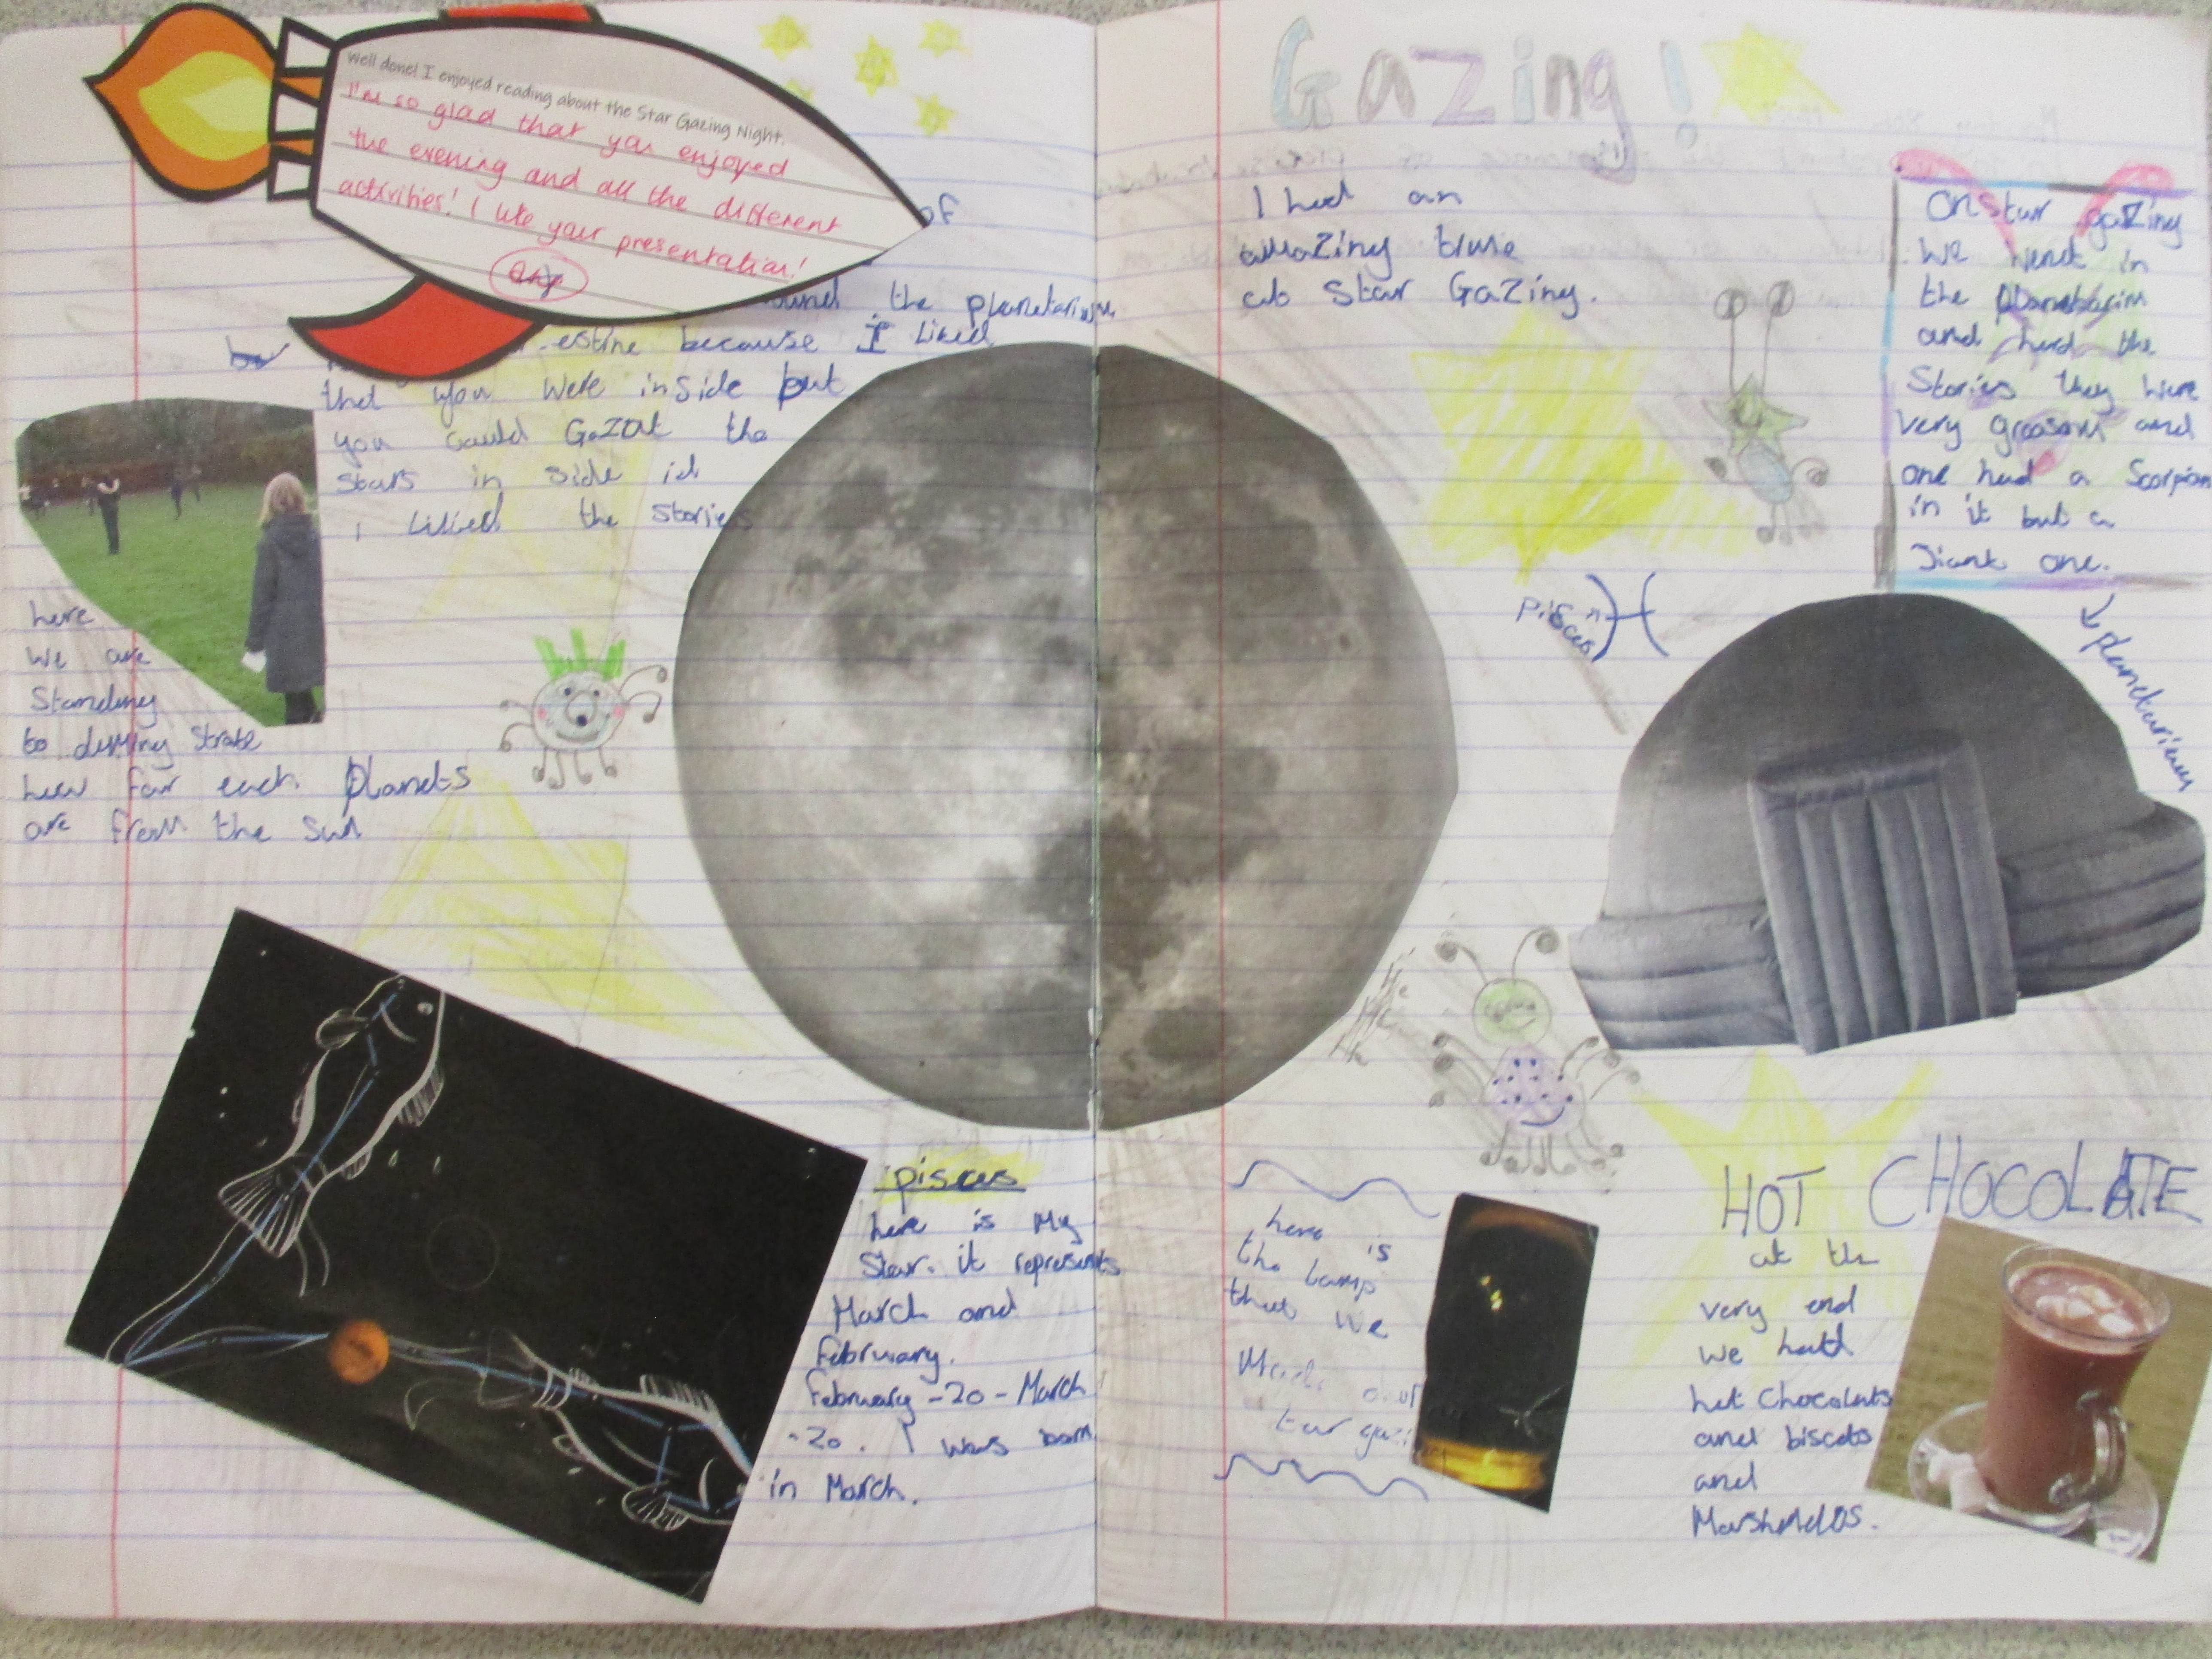 Well done! I enjoyed reading about the Star Gazing Night.
I'm so glad that you enjoyed
the evening and all the different
activities! I like your presentation!
of
the planetarium
because I liked
that you were inside but
you could Gazat the
stars in side id
i likied the stories
here
we are
Standing
to dimingstrate
how far each planets
are from the sun
pisces
here is My
Star. it represents
March and
february.
february -20 - March
-20. I was born
in March.
Gazing!
I had an
amazing time
at Star Gazing.
On Star gazing
we went in
the planetarim
and herd the
Stories they were
very and
one had a Scorpion
in it but a
Jiant one.
planetarium
Pisces
here is
the lamp
that we
Made
HOT CHOCOLATE
at the
very end
we hatd
hot chocolats
and biscets
and
MarshMelOS.